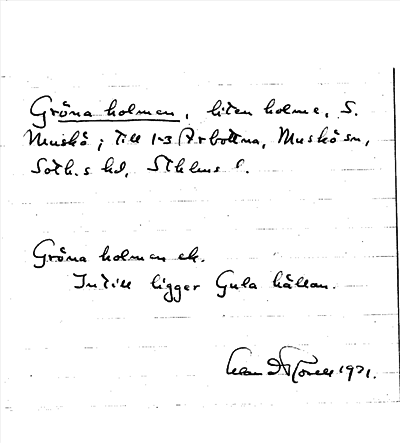 Gröna holmen, liten holme, S.
Muskö; till 1-3 Arbottna, Muskö sn,
Soth.s hd, Sthlms l.
Gröna holmen ek.
Intill ligger Gula hällan.
1921.